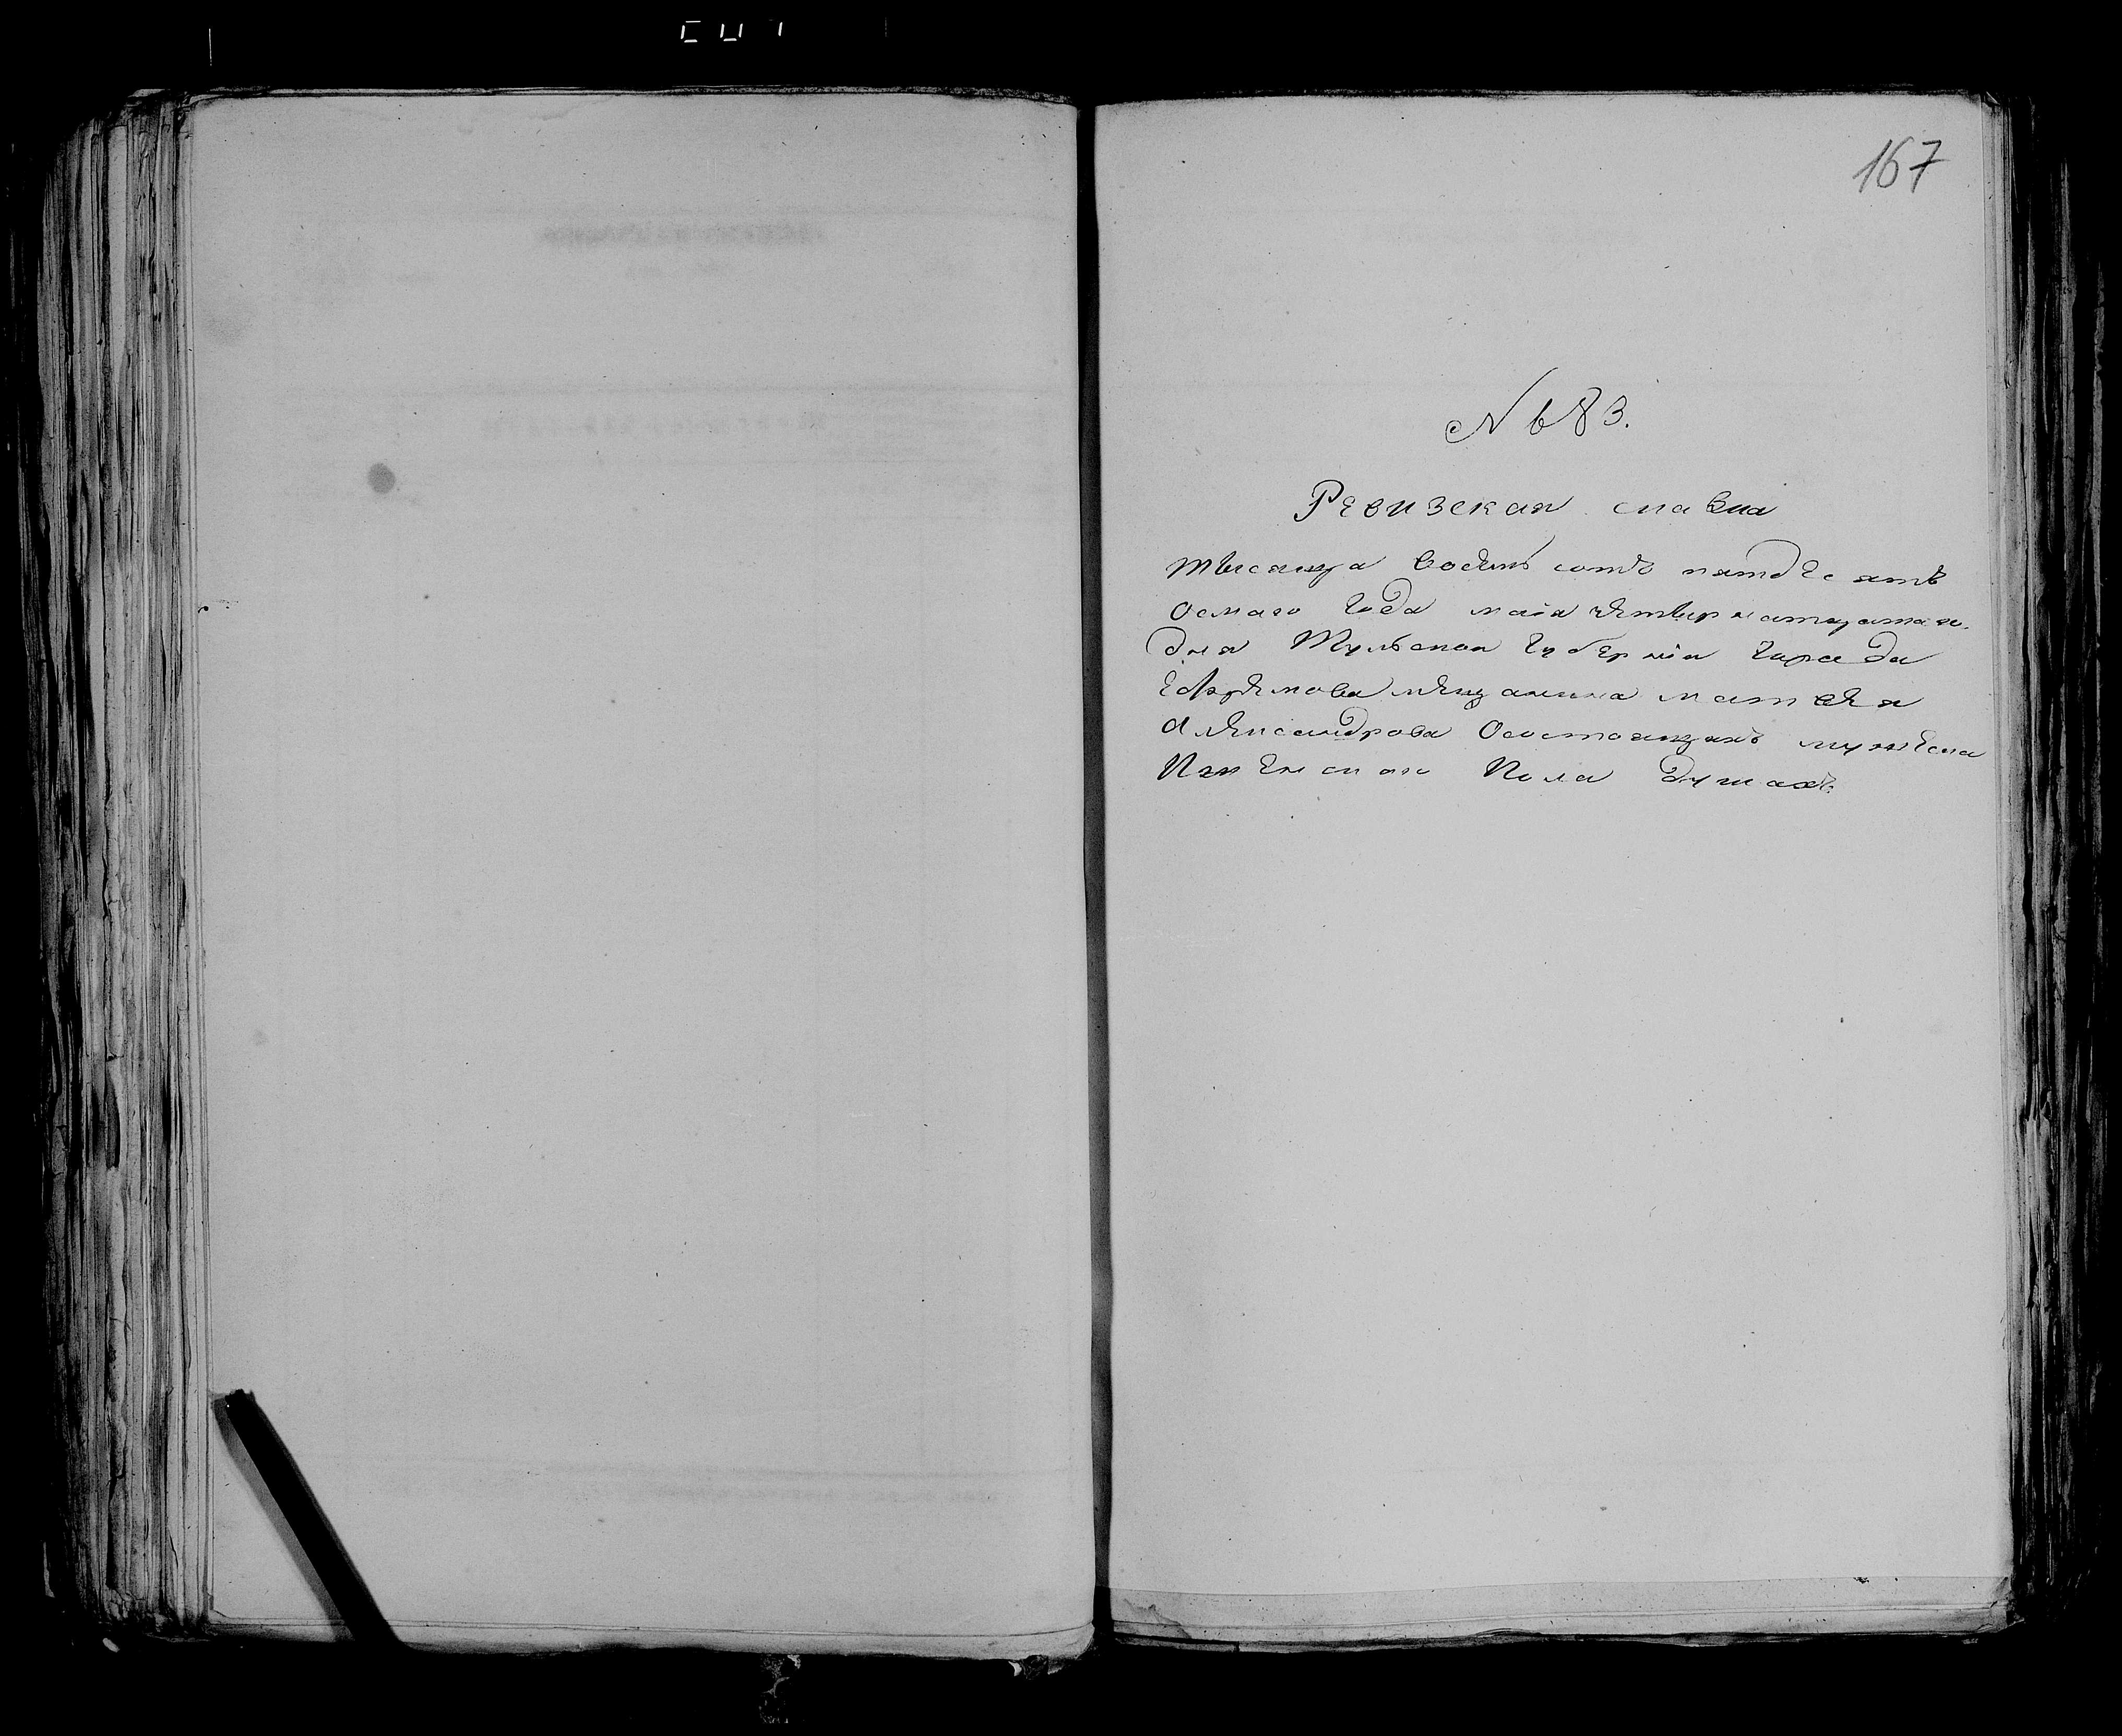 167
№ 683.
Ревизская сказка
тысяща восемь сотъ пятдесятъ
осмаго года маия четвернатцатаго
дня Тульской губерніи города
Ефремова мещанина матвея
Александрова Осостоящихъ мужеска
Иженскаго Пола душахъ.